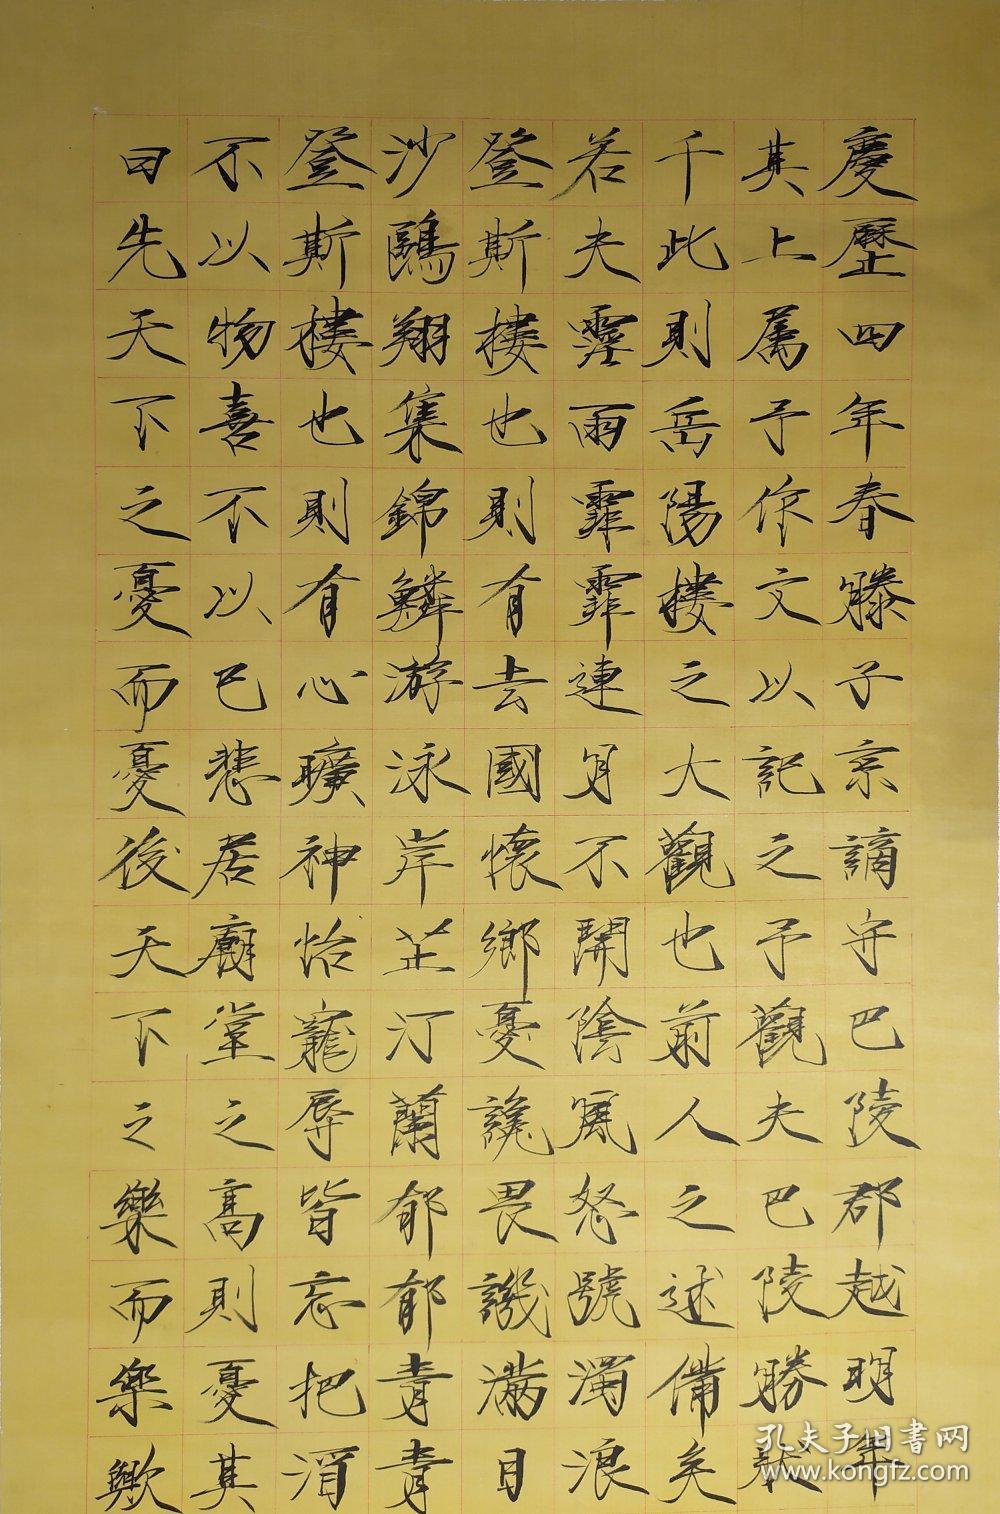 慶歷四年春滕子京謫守巴陵郡越明年
其上屬予作文以記之予觀夫巴陵勝狀
千此則岳陽樓之大觀也前人之述備矣
若夫霪雨霏霏連月不開陰風怒號濁浪
登斯樓也則有去國懷鄉憂讒畏譏滿目
沙鷗翔集錦鱗游泳岸芷汀蘭郁郁青青
登斯樓也則有心曠神怡寵辱皆忘把酒
不以物喜不以己悲居廟堂之高則憂其
曰先天下之憂而憂後天下之樂而樂歟
孔夫子旧書网
www.kongfz.com